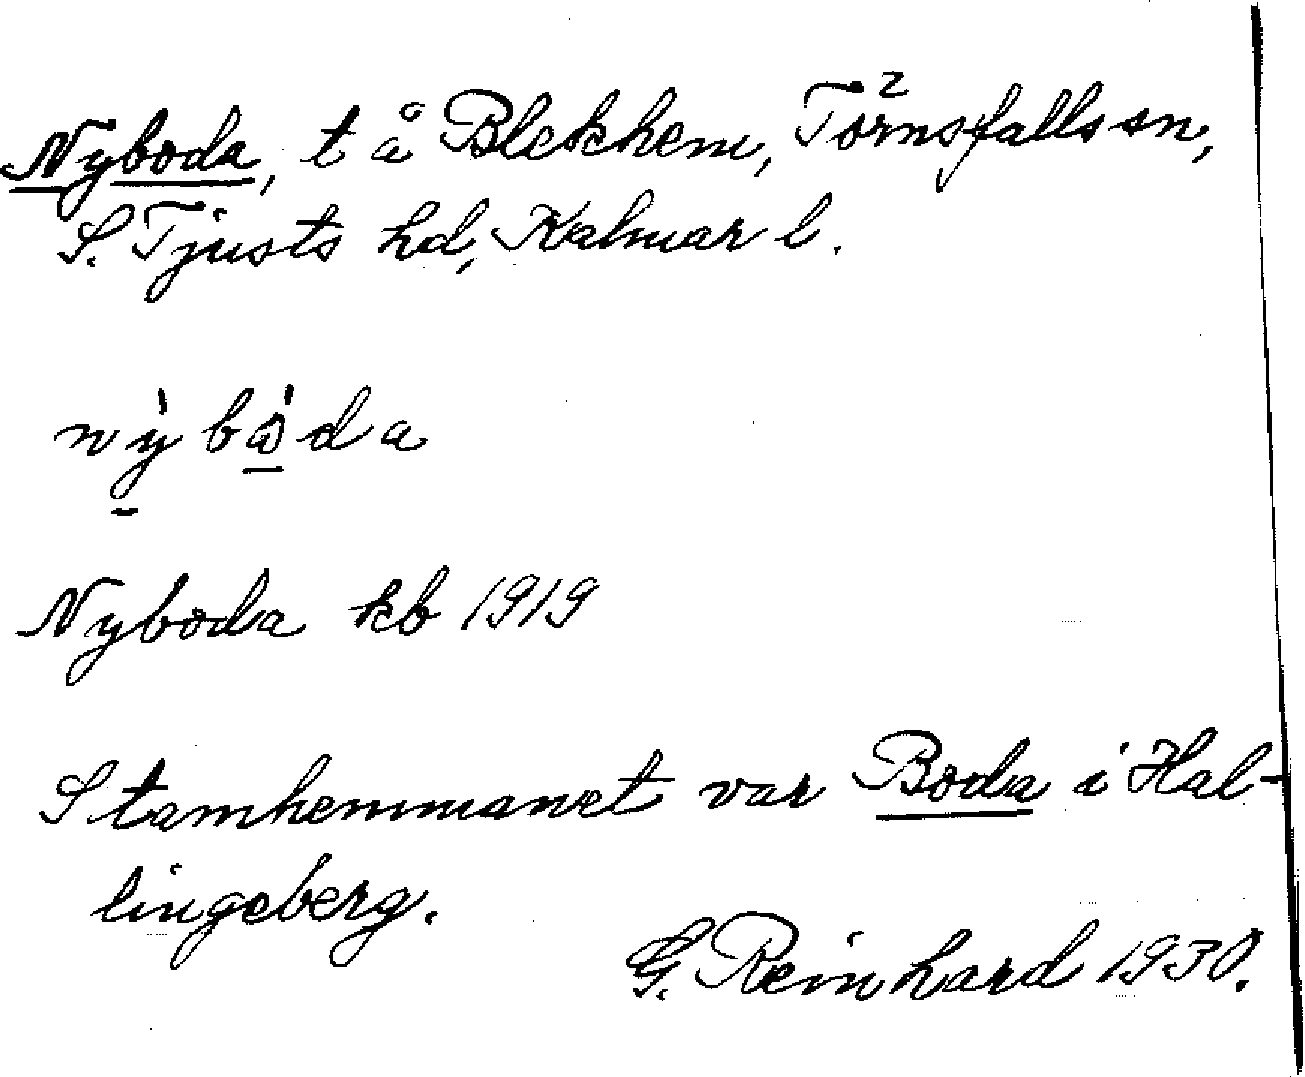 Nyboda, t å Blekhem, Törnsfalls sn,
S. Tjusts hd, Kalmar l.
Nyboda kb 1919
Stamhemmanet var Boda i Hal-
lingeberg.
G. Reinhard 1930.